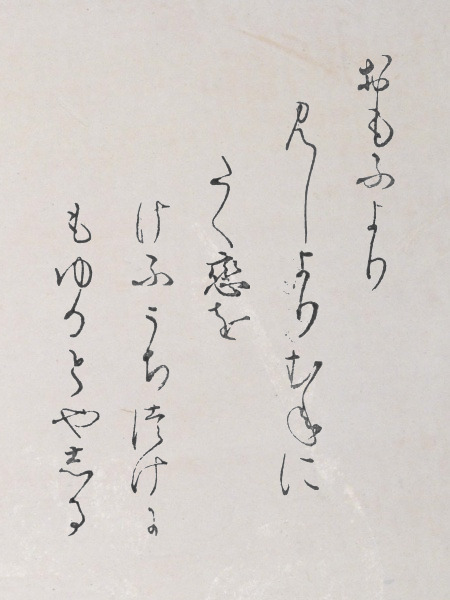 おもふより
見しよりむねに
たく戀を
けふうちつけに
もゆるとやしる